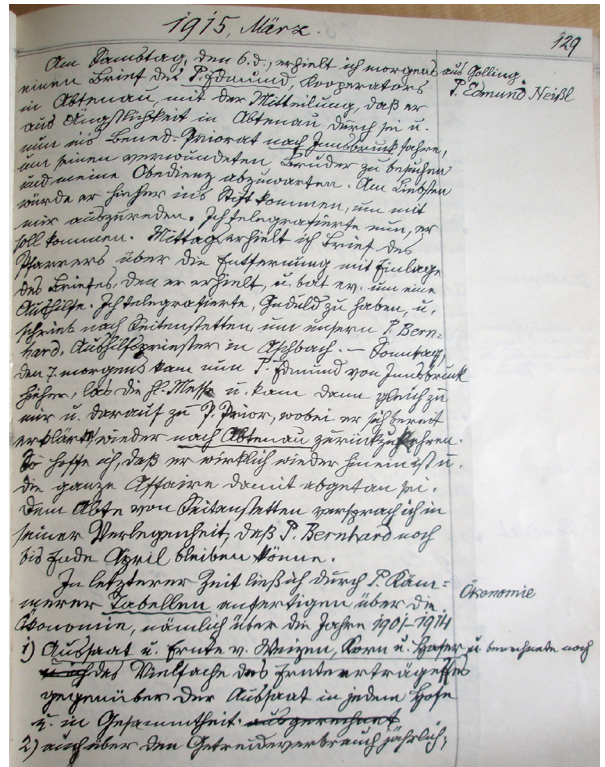 1915, März.
129
Am Samstag, den 6. d., erhielt ich morgens aus Golling
einen Brief des P. Edmund, Kooperators
P. Edmund Neißl
in Abtenau, mit der Mitteilung, daß er
aus Ängstlichkeit in Abtenau durch sei u.
nun ins Bened.-Priorat nach Innsbruck fahre,
um seinen verwundeten Bruder zu besuchen
und meine Obedienz abzuwarten. Am liebsten
würde er hieher ins Stift kommen, um mit
mir auszureden. Ich telegrafierte nun, er
soll kommen. Mittag erhielt ich Brief des
Pfarrers über die Entfernung mit Einlage
des Briefes, den er erhielt, u. bat ev. um eine
Aushilfe. Ich telegrafierte, Geduld zu haben, u.
schrieb nach Seitenstetten, um unsern P. Bern-
hard, Aushilfspriester in Aschbach. – Sonntag,
den 7. morgens kam nun P. Edmund von Innsbruck
hieher, las die hl. Messe u. kam dann gleich zu
mir u. darauf zu P. Prior, wobei er sich bereit
erklärte, wieder nach Abtenau zurückzukehren.
So hoffe ich, daß er wirklich wieder hinein ist u.
die ganze Affaire damit abgetan sei.
Dem Abte von Seitenstetten versprach ich in
seiner Verlegenheit, daß P. Bernhard noch
bis Ende April bleiben könne.
In letzterer Zeit ließ ich durch P. Käm-
Ökonomie
merer Tabellen anfertigen über die
Ökonomie, nämlich über die Jahre 1901-1914
1) Aussaat u. Ernte v. Weizen, Korn u. Hafer u. berechnete noch
das Vielfache des Ernteerträgnisses
gegenüber der Aussaat in jedem Hofe
u. in Gesammtheit ausgerechnet
2) auch über den Getreideverbrauch jährlich;